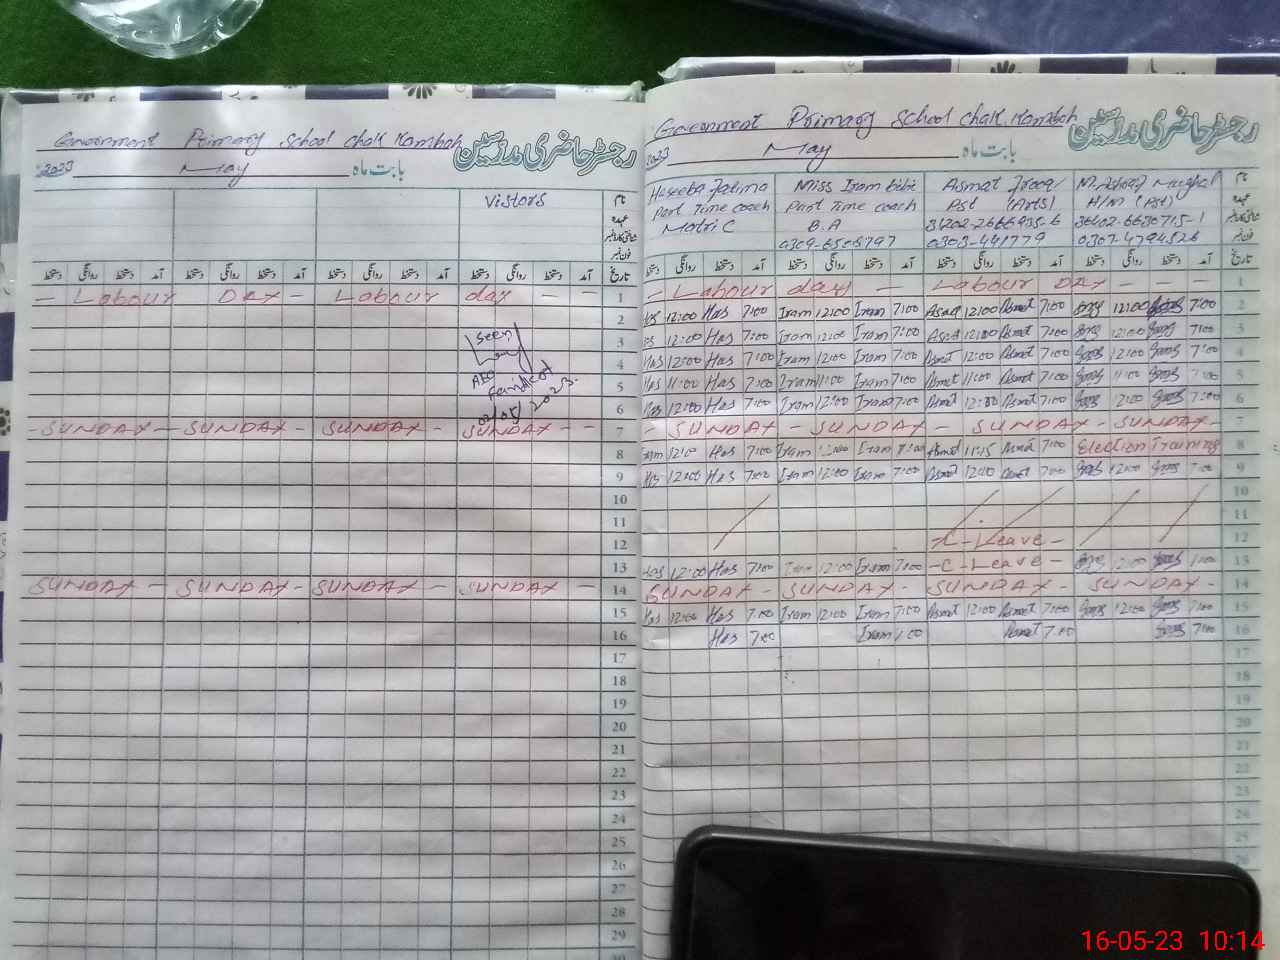 Government Primary School Chak Kamboh
رجسٹر حاضری مدرسین
2023 May بابت ماہ
Vistors
نام
عہدہ
دستخط روانگی دستخط آمد دستخط روانگی دستخط آمد دستخط روانگی دستخط آمد دستخط روانگی دستخط آمد تاریخ
- Labour DAY - Labour day - - 1
2
Seen
3
4
AEO
5
02/05/2023.
6
- SUNDAY - SUNDAY - SUNDAY - SUNDAY - 7
8
9
10
11
12
13
SUNDAY - SUNDAY - SUNDAY - SUNDAY - 14
15
16
17
18
19
20
21
22
23
24
25
26
27
28
29
Government Primary School Chak Kamboh
رجسٹر حاضری مدرسین
2023 May بابت ماہ
Haseeba Fatima Miss Iram bibi Asmat M. Ashraf Mughal نام
Part Time coach Part Time coach Pst (Arts) H/M (Pst) عہدہ
Matric B.A
دستخط روانگی دستخط آمد دستخط روانگی دستخط آمد دستخط روانگی دستخط آمد دستخط روانگی دستخط آمد تاریخ
- Labour day - Labour DAY - - - 1
Has 12:00 Has 7:00 Iram 12:00 Iram 7:00 Asmat 12:00 Asmat 7:00 12:00 7:00 2
Has 12:00 Has 7:00 Iram 12:00 Iram 7:00 Asmat 12:00 Asmat 7:00 12:00 7:00 3
Has 12:00 Has 7:00 Iram 12:00 Iram 7:00 Asmat 12:00 Asmat 7:00 12:00 7:00 4
Has 11:00 Has 7:00 Iram 11:00 Iram 7:00 Asmat 11:00 Asmat 7:00 11:00 7:00 5
Has 12:00 Has 7:00 Iram 12:00 Iram 7:00 Asmat 12:00 Asmat 7:00 12:00 7:00 6
SUNDAY - SUNDAY - SUNDAY - SUNDAY - 7
12:00 Has 7:00 Iram 12:00 Iram 7:00 Asmat 11:15 Asmat 7:00 Election Training 8
Has 12:00 Has 7:00 Iram 12:00 Iram 7:00 Asmat 12:00 Asmat 7:00 12:00 7:00 9
10
11
- C - Leave - 12
Has 12:00 Has 7:00 Iram 12:00 Iram 7:00 - C - Leave - 12:00 7:00 13
SUNDAY - SUNDAY - SUNDAY - SUNDAY - 14
Has 12:00 Has 7:00 Iram 12:00 Iram 7:00 Asmat 12:00 Asmat 7:00 12:00 7:00 15
Has 7:00 Iram 7:00 Asmat 7:00 7:00 16
17
18
19
20
21
22
23
24
25
16-05-23 10:14